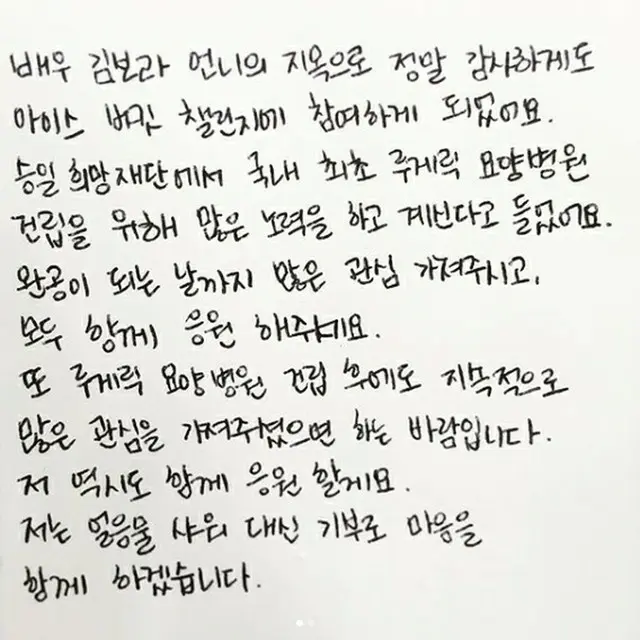 배우 김보라 언니의 지목으로 정말 감사하게도
아이스 버킷 챌린지에 참여하게 되었어요.
승일희망재단에서 국내 최초 루게릭 요양병원
건립을 위해 많은 노력을 하고 계신다고 들었어요.
완공이 되는 날까지 많은 관심 가져주시고,
모두 함께 응원 해주세요.
또 루게릭 요양병원 건립 후에도 지속적으로
많은 관심을 가져주셨으면 하는 바람입니다.
저 역시도 함께 응원 할게요.
저는 얼음물 샤워 대신 기부로 마음을
함께 하겠습니다.